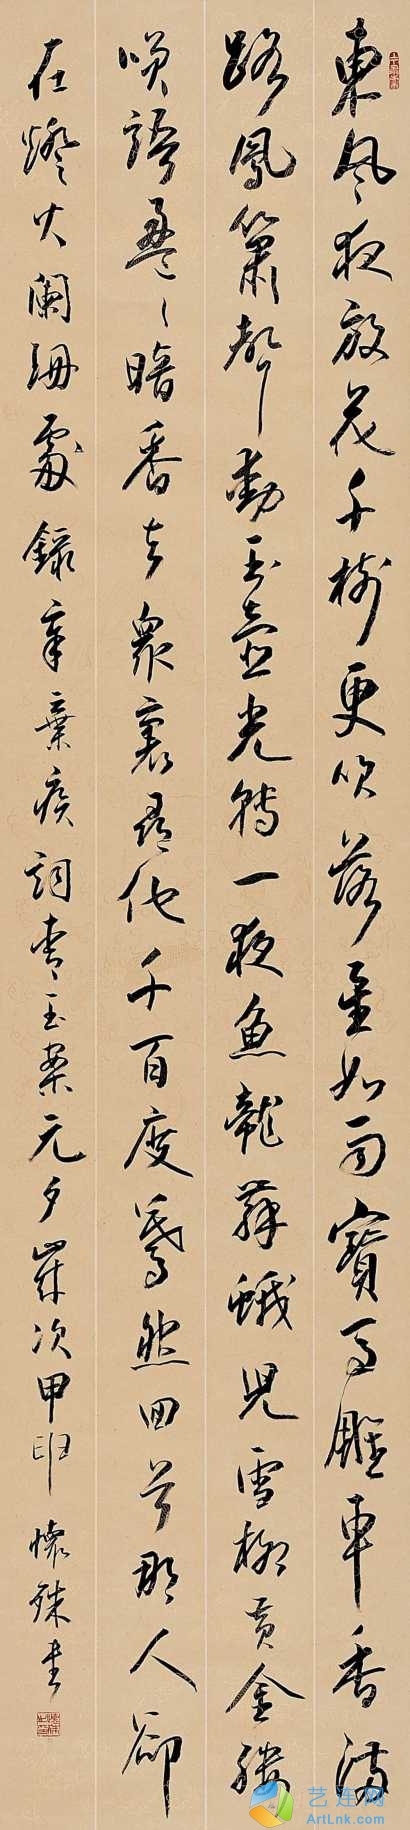 東風夜放花千樹更吹落星如雨寶馬雕車香滿
路鳳簫聲動玉壺光轉一夜魚龍舞蛾兒雪柳黃金縷
笑語盈々暗香去衆裏尋他千百度驀然回首那人卻
在燈火闌珊處錄辛棄疾詞青玉案元夕歲次甲申懷銖書
艺连网
ArtLnk.com